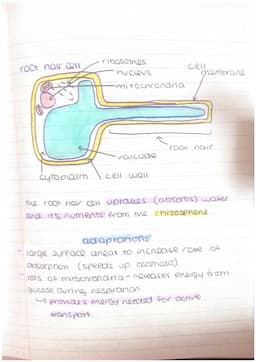 root hair cell
ribosomes
nucleus
mitochrondria
cell
membrane
root hair
vaicuole
cytoplasm
cell wall
the root hair cell uptakes (absorbs) water
and it's nutrients from the rhizosphere
adaptations
- large surface areat to increase rate of
absorption (speeds up osmosis)
- lots of mitochrondria - releases energy from
glucose during respiration
↳ provides energy needed for active
transport.